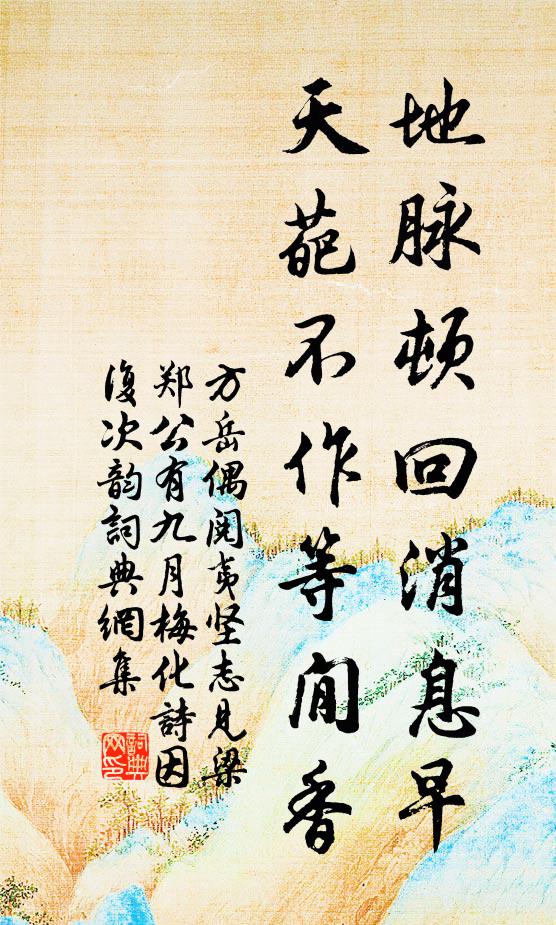 地脉顿回消息早
天葩不作等闲香
方岳偶阅夷坚志见梁
郑公有九月梅化詩因
復次韵詞典網集
詞典网印